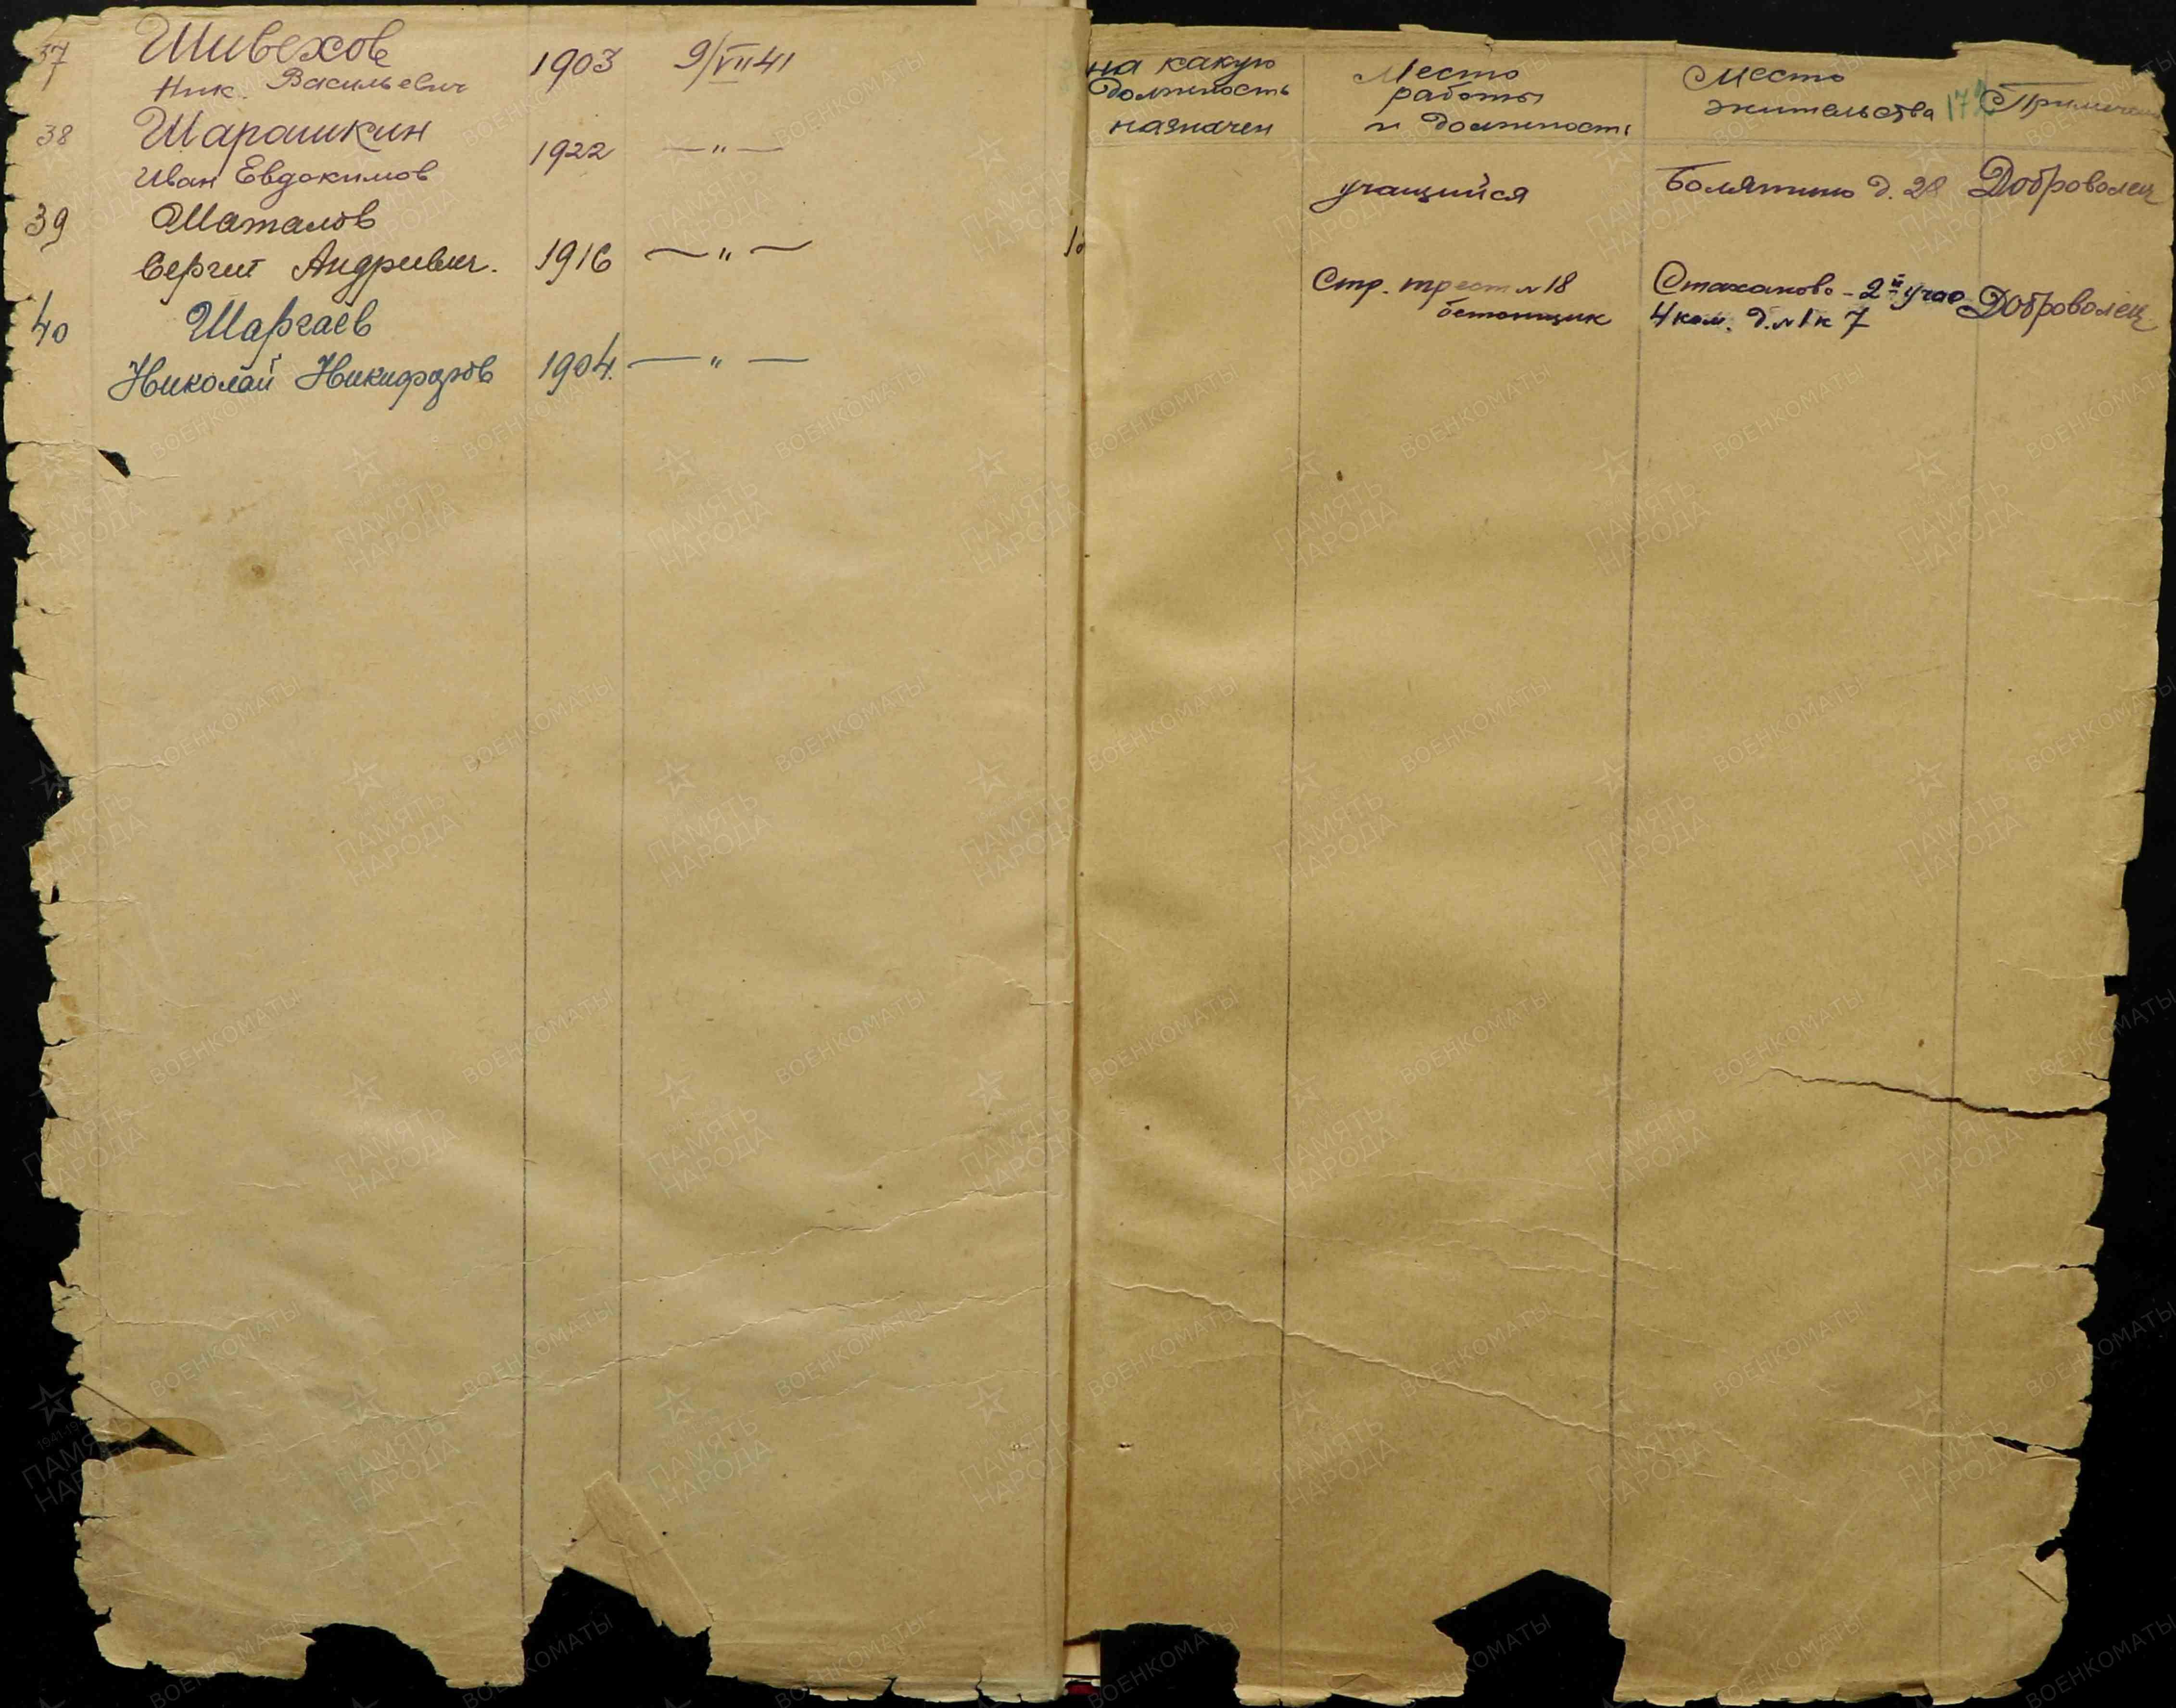 37 Шивехов
Ник. Васильевич 1903 9/VII 41
38 Шарашкин
Иван Евдокимов 1922 —〃—
39 Шаталов
Сергей Андриевич. 1916 —〃—
40 Шаргаев
Николай Никифоров 1904. —〃—
на какую
должность
назначен
Место
работы
и должность
Место
жительства
Примечан
учащийся Болятино д. 28 Доброволец
Стр. трест №18
бетонщик
Стаханово - 2й учас
4 ком. д. №1 к 7
Доброволец